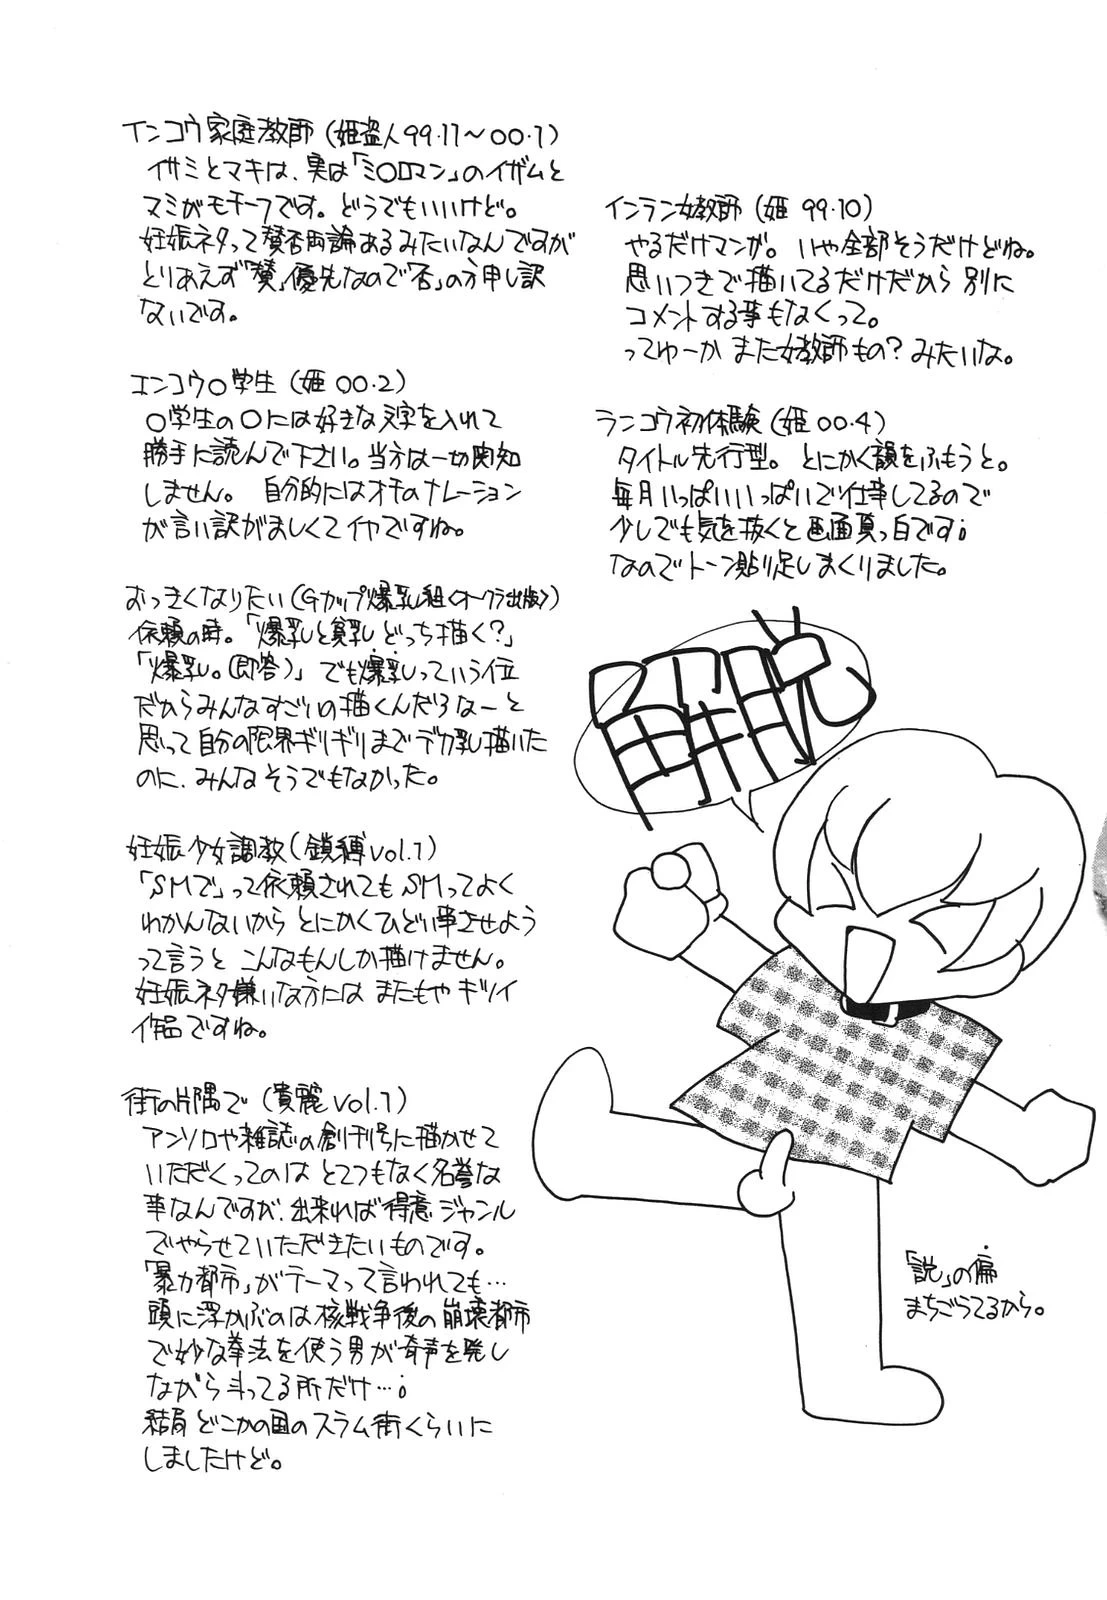 インコウ家庭教師(姫盗人99.11～00.1)
イサミとマキは、実は「ミ○ロマン」のイザムと
マミがモチーフです。どうでもいいけど。
妊娠ネタって賛否両論あるみたいなんですが
とりあえず「賛」優先なので「否」の方申し訳
ないです。
エンコウ○学生(姫00.2)
○学生の○には好きな文字を入れて
勝手に読んで下さい。当方は一切関知
しません。自分的にはオチのナレーション
が言い訳がましくてイヤですね。
おっきくなりたい(Gカップ爆乳組<オークラ出版>)
依頼の時。「爆乳と貧乳どっち描く?」
「爆乳。(即答)」でも爆乳っていう位
だからみんなすごいの描くんだろなーと
思って自分の限界ギリギリまでデカ乳描いた
のに、みんなそうでもなかった。
妊娠少女調教(鎖縛vol.1)
「SMで」って依頼されてもSMってよく
わかんないからとにかくひどい事させよう
って言うとこんなもんしか描けません。
妊娠ネタ嫌いな方にはまたもやキツイ
作品ですね。
街の片隅で(貴麗vol.1)
アンソロや雑誌の創刊号に描かせて
いただくってのはとてつもなく名誉な
事なんですが、出来れば得意ジャンル
でやらせていただきたいものです。
「暴力都市」がテーマって言われても…
頭に浮かぶのは核戦争後の崩壊都市
で妙な拳法を使う男が奇声を発し
ながら斗ってる所だけ…;
結局どこかの国のスラム街くらいに
しましたけど。
インラン女教師(姫99.10)
やるだけマンガ。いや全部そうだけどね。
思いつきで描いてるだけだから別に
コメントする事もなくって。
ってゆーかまた女教師もの?みたいな。
ランコウ初体験(姫00.4)
タイトル先行型。とにかく韻をふもうと。
毎月いっぱいいっぱいで仕事してるので
少しでも気を抜くと画面真っ白です;
なのでトーン貼り足しまくりました。
「説」の偏
まちごうてるから。